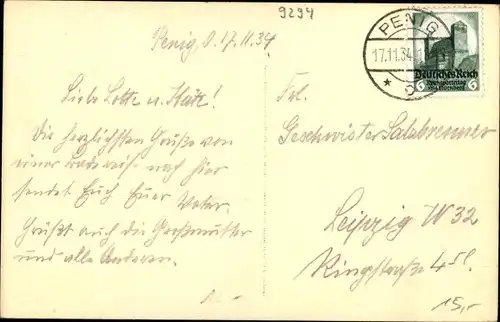 9294
Penig, d. 17.11.34
Liebe Lotte u. Käte!
Die herzlichsten Grüße von
einer nach hier
sendet Euch Euer Vater.
Grüßt auch die Großmutter
und alle Anderen.
PENIG
17.11.34
Deutsches Reich
Reichsparteitag
1934 Nürnberg
6 6
Frl.
Geschwister Salzbrenner
Leipzig W 32
Ringstraße 4
15,-